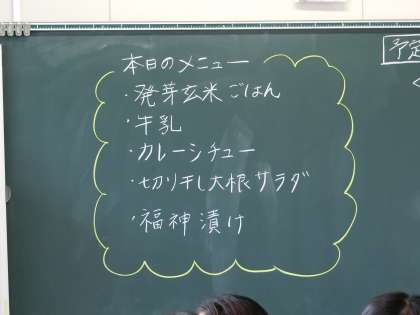 本日のメニュー
・発芽玄米ごはん
・牛乳
・カレーシチュー
・切り干し大根サラダ
・福神漬け
予定